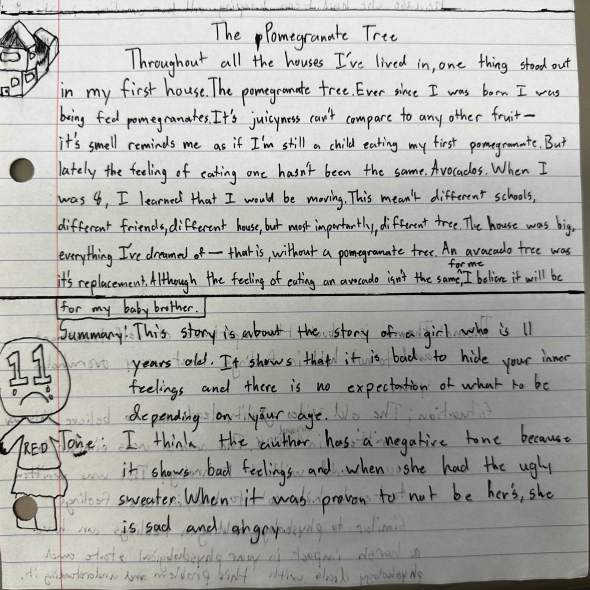 The Pomegranate Tree
Throughout all the houses I've lived in, one thing stood out
in my first house. The pomegranate tree. Ever since I was born I was
being fed pomegranates. It's juicyness can't compare to any other fruit—
it's smell reminds me as if I'm still a child eating my first pomegranate. But
lately the feeling of eating one hasn't been the same. Avocados. When I
was 8, I learned that I would be moving. This mean't different schools,
different friends, different house, but most importantly, different tree. The house was big,
everything I've dreamed of — that is, without a pomegranate tree. An avacado tree was
it's replacement. Although the feeling of eating an avocado isn't the same for me, I believe it will be
for my baby brother.
Summary: This story is about the story of a girl who is 11
years old. It shows that it is bad to hide your inner
feelings and there is no expectation of what to be
depending on your age.
11
RED
Tone: I think the author has a negative tone because
it shows bad feelings and when she had the ugly
sweater. When it was proven to not be her's, she
is sad and angry